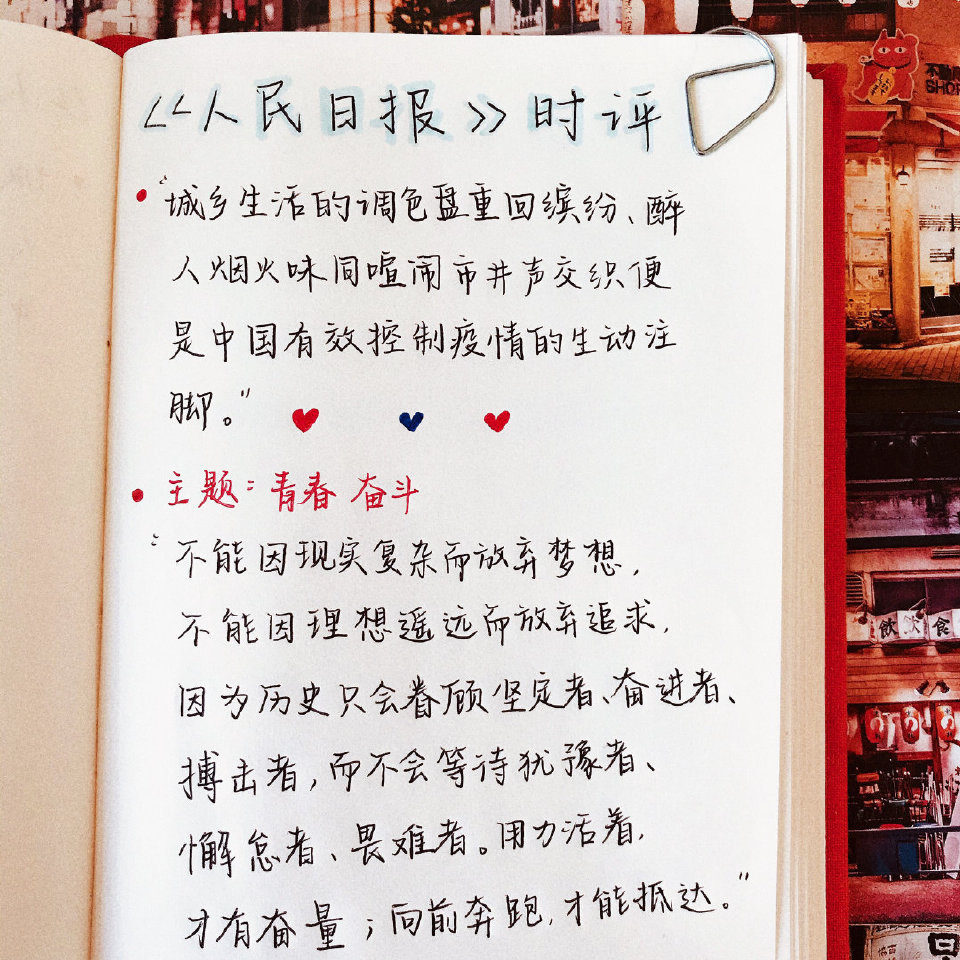 《人民日报》时评
“城乡生活的调色盘重回缤纷、醉
人烟火味同喧闹市井声交织便
是中国有效控制疫情的生动注
脚。”
主题：青春 奋斗
“不能因现实复杂而放弃梦想，
不能因理想遥远而放弃追求，
因为历史只会眷顾坚定者、奋进者、
搏击者，而不会等待犹豫者、
懈怠者、畏难者。用力活着，
才有奋量；向前奔跑，才能抵达。”
不動
SHOP
飲
食